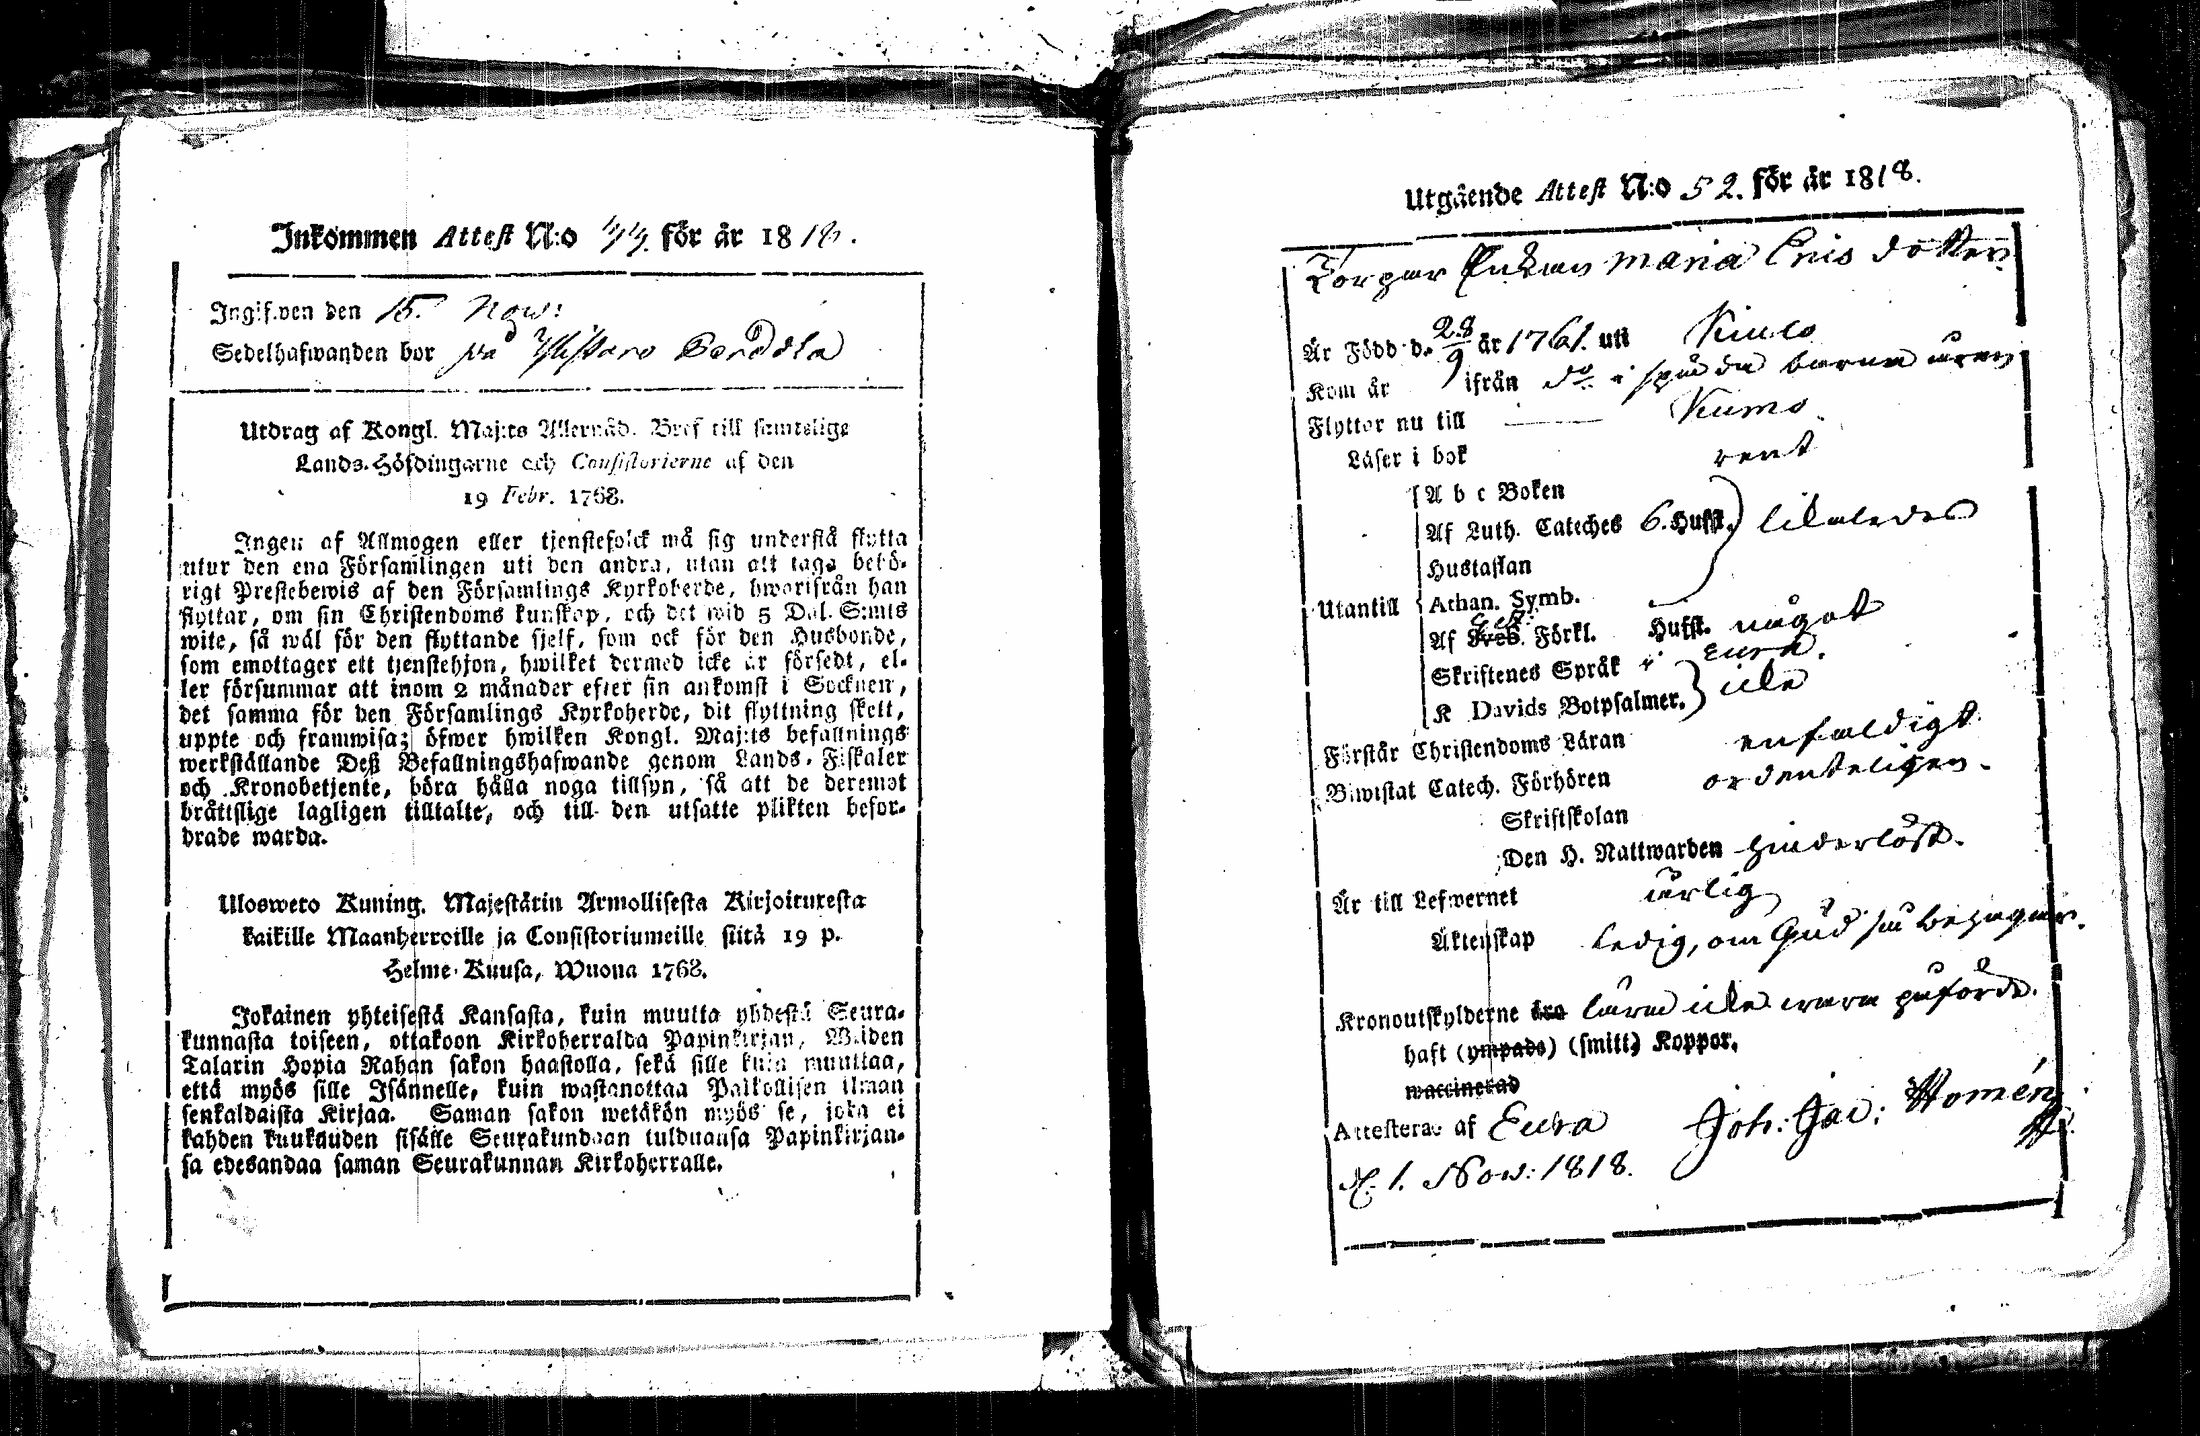 Inkommen Attest N:o 44. för år 1818.
Ingifwen den 15. Now:
Sedelhafwanden bor på
Utdrag af Kongl. Maj:ts Allernåd. Bref till samtelige
Lands-Höfdingarne och Consistorierne af den
19 Febr. 1768.
Ingen af Allmogen eller tjenstefolck må sig understå flytta
utur den ena Församlingen uti den andra, utan att taga behö-
rigt Prestebewis af den Församlings Kyrkoherde, hwarifrån han
flyttar, om sin Christendoms kunskap, och det wid 5 Dal. S:mts
wite, så wäl för den flyttande sjelf, som ock för den Husbonde,
som emottager ett tjenstehjon, hwilket dermed icke är försedt, el-
ler försummar att inom 2 månader efter sin ankomst i Socknen,
det samma för den Församlings Kyrkoherde, dit flyttning skett,
uppte och framwisa; öfwer hwilken Kongl. Maj:ts befallnings
werkställande Deß Befallningshafwande genom Lands-Fiskaler
och Kronobetjente, böra hålla noga tillsyn, så att de deremot
bråttslige lagligen tilltalte, och till den utsatte plikten befor-
drade warda.
Ulosweto Kuning. Majestätin Armollisesta Kirjoituxesta
kaikille Maanherroille ja Consistoriumeille siitä 19 p.
Helme-Kuusa, Wuona 1768.
Jokainen yhteisestä Kansasta, kuin muutta yhdestä Seura-
kunnasta toiseen, ottakoon Kirkoherralda Papinkirjan, Wiiden
Talarin Hopia Rahan sakon haastolla, sekä sille kuin muuttaa,
että myös sille Isännelle, kuin wastanottaa Palkollisen ilman
senkaldaista Kirjaa. Saman sakon wetäkön myös se, joka ei
kahden kuukauden sisälle Seurakundaan tulduansa Papinkirjan-
sa edesandaa saman Seurakunnan Kirkoherralle.
Utgående Attest N:o 52. för år 1818.
Torpar Enkan Maria Eris dotter
Är Född d. 28/9 år 1761. uti Kiulo
Kom år ifrån do i späda barna åren
Flyttar nu till Kumo
Läser i bok rent
A b c Boken
Af Luth. Cateches 6. Hufst. likaledes
Hustaflan
Utantill Athan. Symb.
Af Sveb. Förkl. Hufst. något
Skriftenes Språk
K Davids Botpsalmer. icke
Förstår Christendoms Läran enfaldigt
Biwistat Catech. Förhören ordenteligen.
Skriftskolan
Den H. Nattwarden hinderlöst.
Är till Lefwernet ärlig
Äktenskap Ledig, om Gud
Kronoutskylderne äro lära icke wara påförde.
haft (ympade) (smitt) Koppor.
waccinerad
Attesteras af Eura Joh: Jac: Homén
d. 1. Now: 1818.